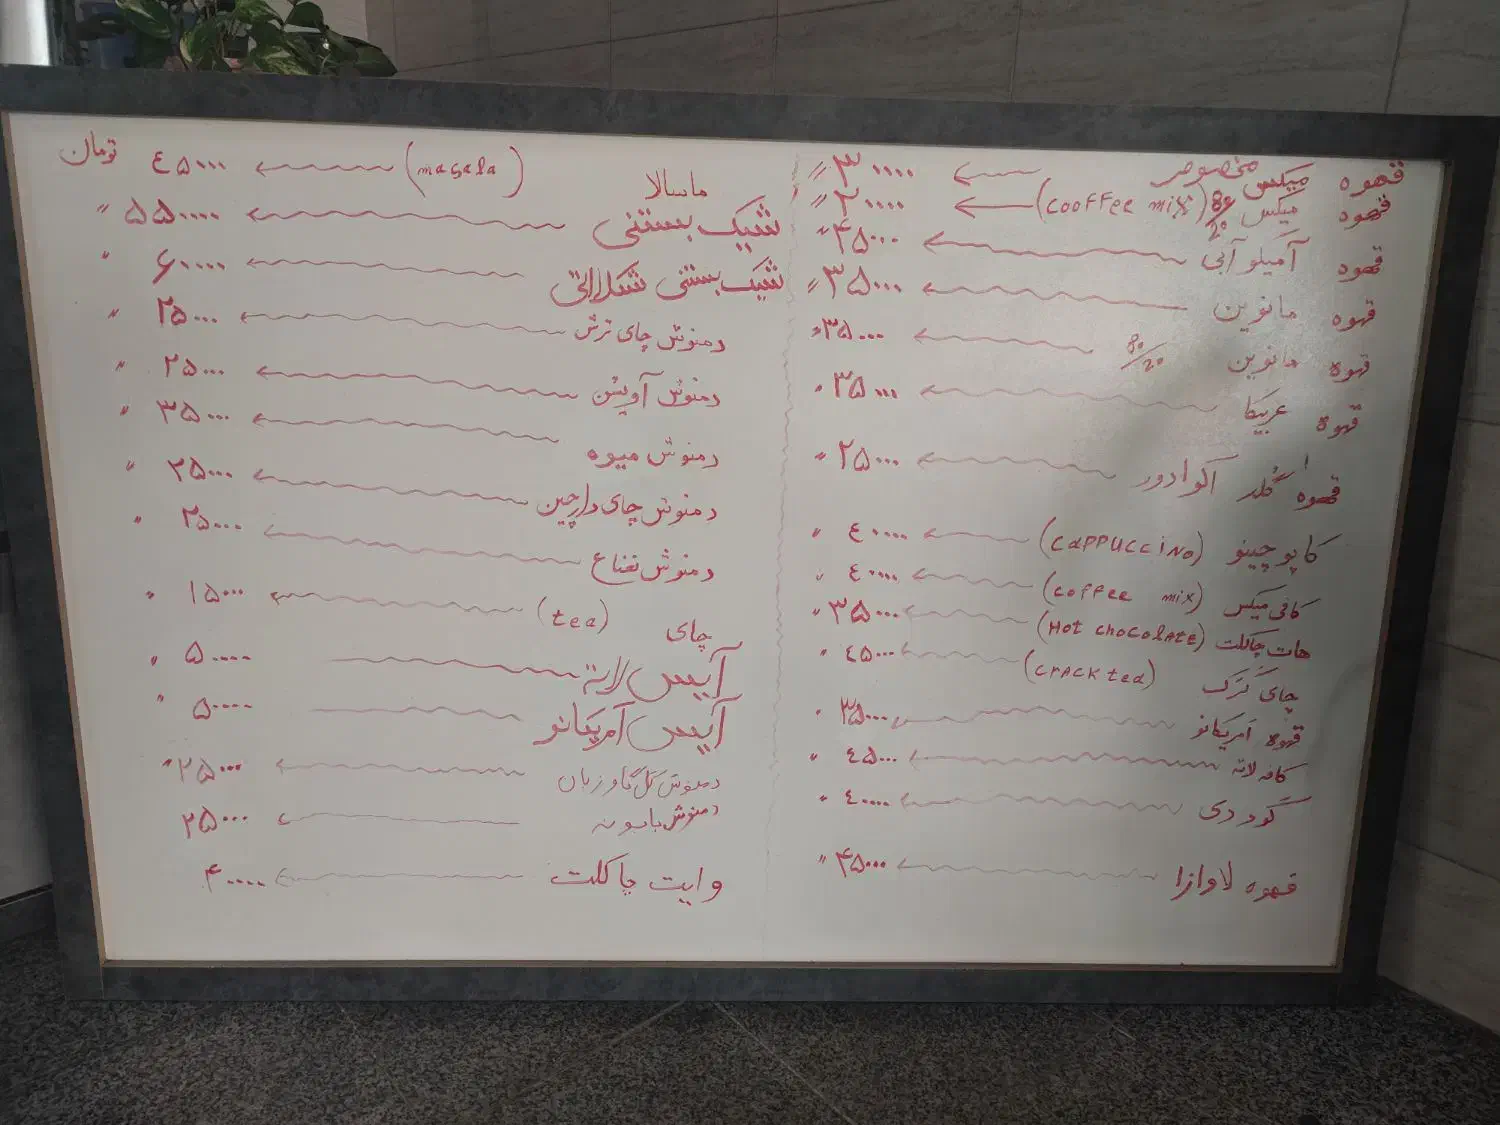 قهوه میکس مخصوص ۳۰۰۰۰ "
قهوه میکس 80/20 (cooffee mix) ۲۰۰۰۰ "
قهوه آمیلو آبی ۴۵۰۰۰ "
قهوه مانوین ۳۵۰۰۰ "
قهوه مانوین 80/20 ۳۵۰۰۰ "
قهوه عربیکا ۳۵۰۰۰ "
قهوه گلد اکوادور ۲۵۰۰۰ "
کاپوچینو (cappuccino) ٤۰۰۰۰ "
کافی میکس (coffee mix) ٤۰۰۰۰ "
هات چاکلت (Hot chocolate) ۳۵۰۰۰ "
چای کَرَک (crack tea) ٤۵۰۰۰ "
قهوه آمریکانو ۳۵۰۰۰ "
کافه لاته ٤۵۰۰۰ "
گود دی ٤۰۰۰۰ "
قهوه لاوازا ۴۵۰۰۰ "
ماسالا (masala) ٤۵۰۰۰ تومان
شیک بستنی ۵۵۰۰۰۰ "
شیک بستنی شکلاتی ۶۰۰۰۰ "
دمنوش چای ترش ۲۵۰۰۰ "
دمنوش آویشن ۲۵۰۰۰ "
دمنوش میوه ۳۵۰۰۰ "
دمنوش چای دارچین ۲۵۰۰۰ "
دمنوش نعناع ۲۵۰۰۰ "
چای (tea) ۱۵۰۰۰ "
آیس لاته ۵۰۰۰۰ "
آیس آمریکانو ۵۰۰۰۰ "
دمنوش گل گاو زبان ۲۵۰۰۰ "
دمنوش بابونه ۲۵۰۰۰
وایت چاکلت ۴۰۰۰۰